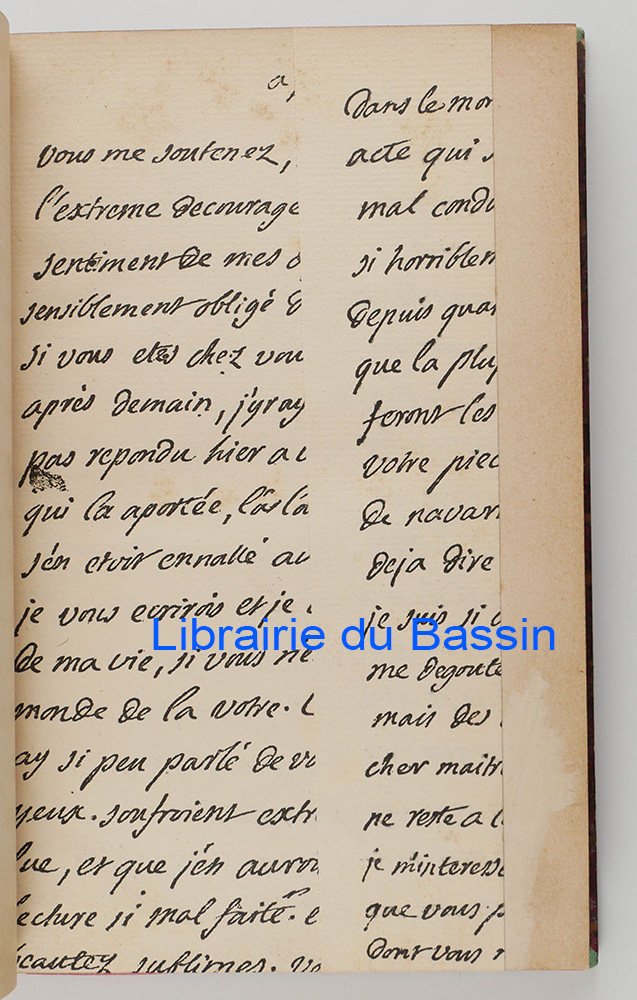 a,
vous me soutenez,
l'extreme decourage
sentiment de mes
sensiblement obligé
si vous etes chez vou
après demain, j'yray
pas repondu hier a
qui la aportée,
s'en etoit en allé au
je vous ecrirois et je
de ma vie, si vous ne
monde de la votre.
ay si peu parlé de
yeux. soufroient extr
lue, et que j'en auroi
lecture si mal faite. e
sublimes.
dans le mon
acte qui s
mal condu
si horriblem
depuis quar
que la plup
feront les
votre piec
de navarr
deja dire
je suis si
me degoute
mais des
cher maitr
ne reste a
je m'interesse
que vous p
dont vous
Librairie du Bassin